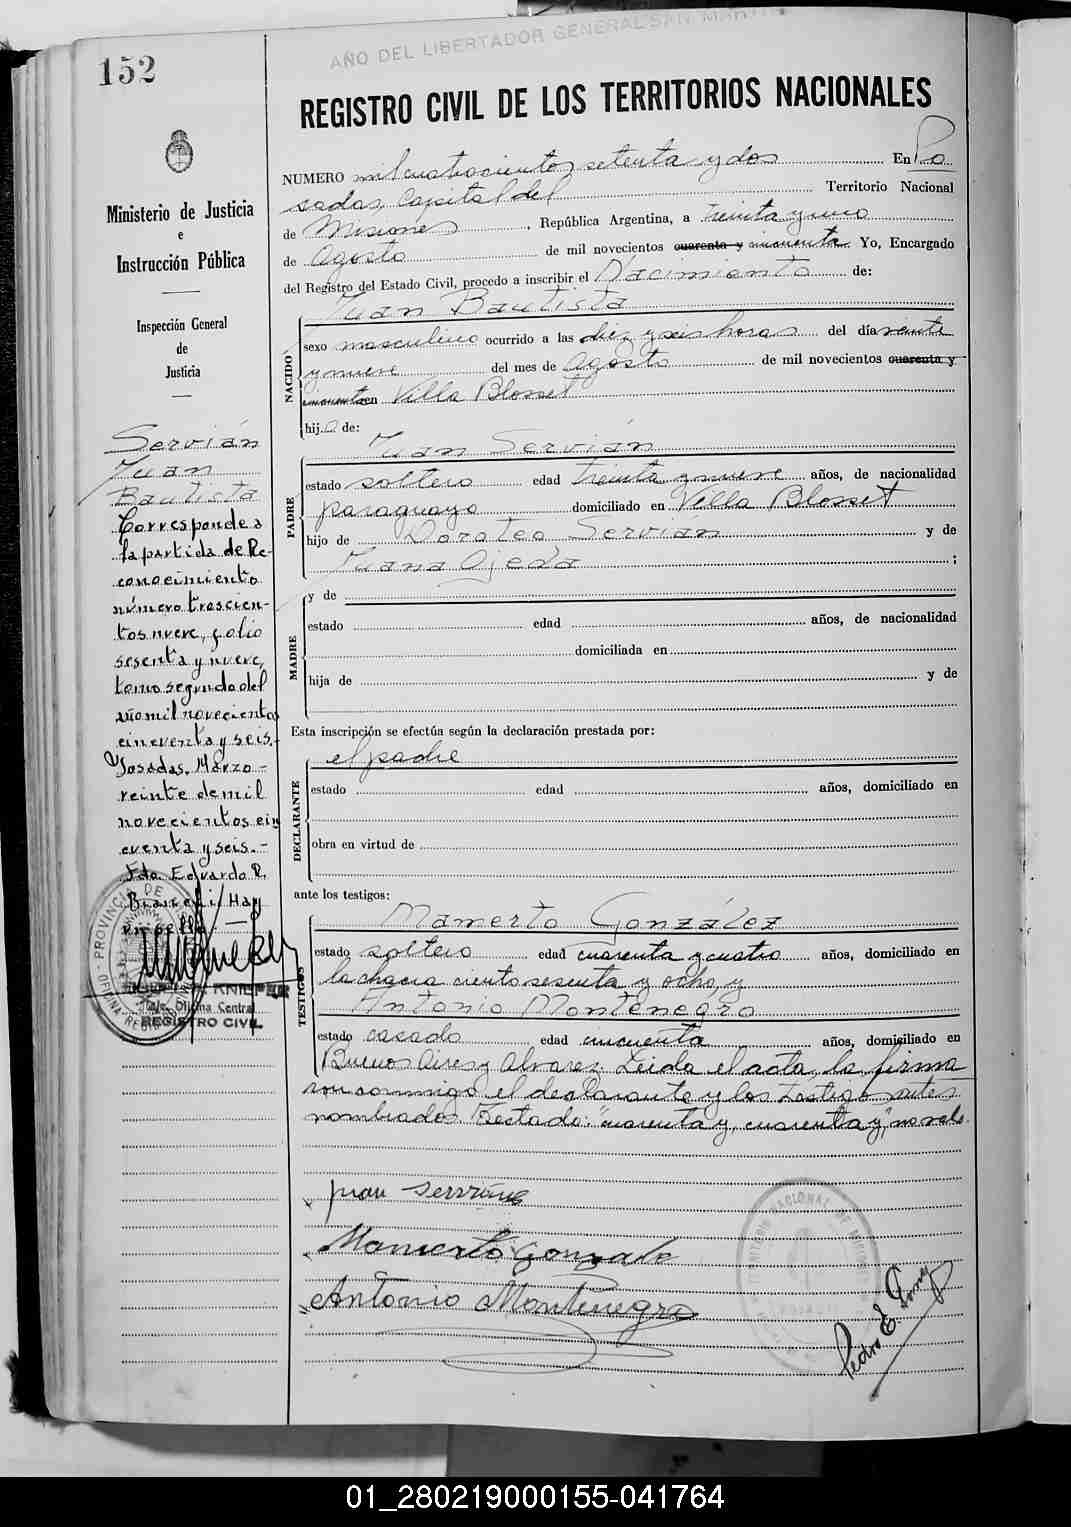 152
AÑO DEL LIBERTADOR GENERAL SAN MARTIN
REGISTRO CIVIL DE LOS TERRITORIOS NACIONALES
Ministerio de Justicia
e
Instrucción Pública
Inspección General
de
Justicia
Servián
Juan
Bautista
Corresponde a
la partida de Re-
conocimiento
número trescien-
tos nueve, folio
sesenta y nueve,
tomo segundo del
año mil novecientos
cincuenta y seis.-
Posadas, Marzo -
veinte de mil
novecientos cin
cuenta y seis.-
Fdo. Eduardo R.
PROVINCIA DE
KNIPPER
Jefe Oficina Central
REGISTRO CIVIL
NUMERO mil cuatrocientos setenta y dos En Po
sadas, Capital del Territorio Nacional
de Misiones, República Argentina, a treinta y uno
de Agosto de mil novecientos cuarenta y cincuenta. Yo, Encargado
del Registro del Estado Civil, procedo a inscribir el Nacimiento de:
NACIDO
Juan Bautista
sexo masculino ocurrido a las diez y seis horas del día veinte
y nueve del mes de Agosto de mil novecientos cuarenta y
cincuenta en Villa Blosset
hijo de:
PADRE
Juan Servián
estado soltero edad treinta y nueve años, de nacionalidad
paraguayo domiciliado en Villa Blosset
hijo de Doroteo Servian y de
Juana Ojeda ;
MADRE
y de
estado edad años, de nacionalidad
domiciliada en
hija de y de
Esta inscripción se efectúa según la declaración prestada por:
DECLARANTE
el padre
estado edad años, domiciliado en
obra en virtud de
ante los testigos:
TESTIGOS
Mamerto González
estado soltero edad cuarenta y cuatro años, domiciliado en
la chacra ciento sesenta y ocho, y
Antonio Montenegro
estado casado edad cincuenta años, domiciliado en
Buenos Aires y Alvarez. Leida el acta, la firma
ron conmigo el declarante y los testigos antes
nombrados. Testado: "cuarenta y, cuarenta y", no vale.
Juan Servian
Mamerto Gonzalez
Antonio Montenegro
Pedro E.
01_280219000155-041764